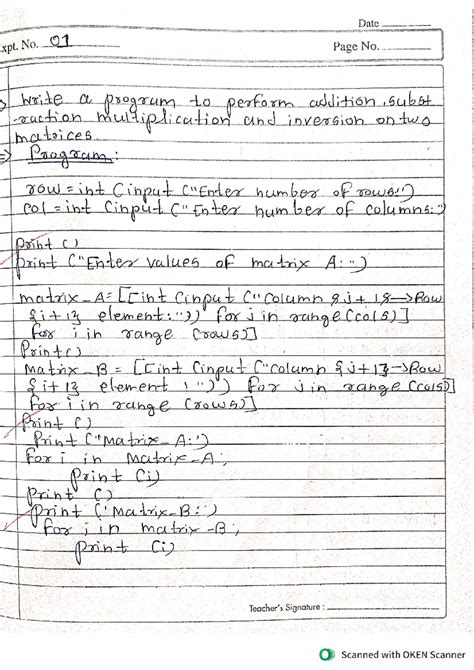 Date
Expt. No. 01
Page No.
Write a program to perform addition, subst
-raction multiplication and inversion on two
matrices.
=> Program:
row = int (input ("Enter number of rows:")
col = int (input ("Enter number of columns:")
print ()
print ("Enter values of matrix A:")
matrix_A = [[int (input ("column {j+1}->Row
{i+1} element:")) for j in range (cols)]
for i in range (rows)]
Print()
Matrix_B = [[int (input ("column {j+1}->Row
{i+1} element :")) for j in range (cols)]
for i in range (rows)]
Print ()
Print ("Matrix_A:")
for i in Matrix_A:
print (i)
print ()
print ("Matrix_B:")
for i in matrix_B:
print (i)
Teacher's Signature :
Scanned with OKEN Scanner